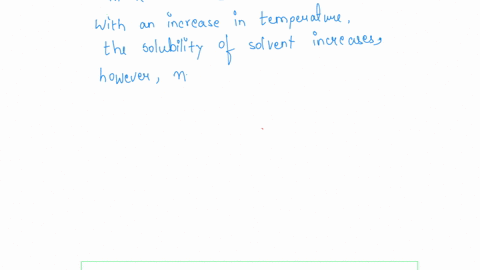 With an increase in temperature,
the solubility of solvent increases,
however, n